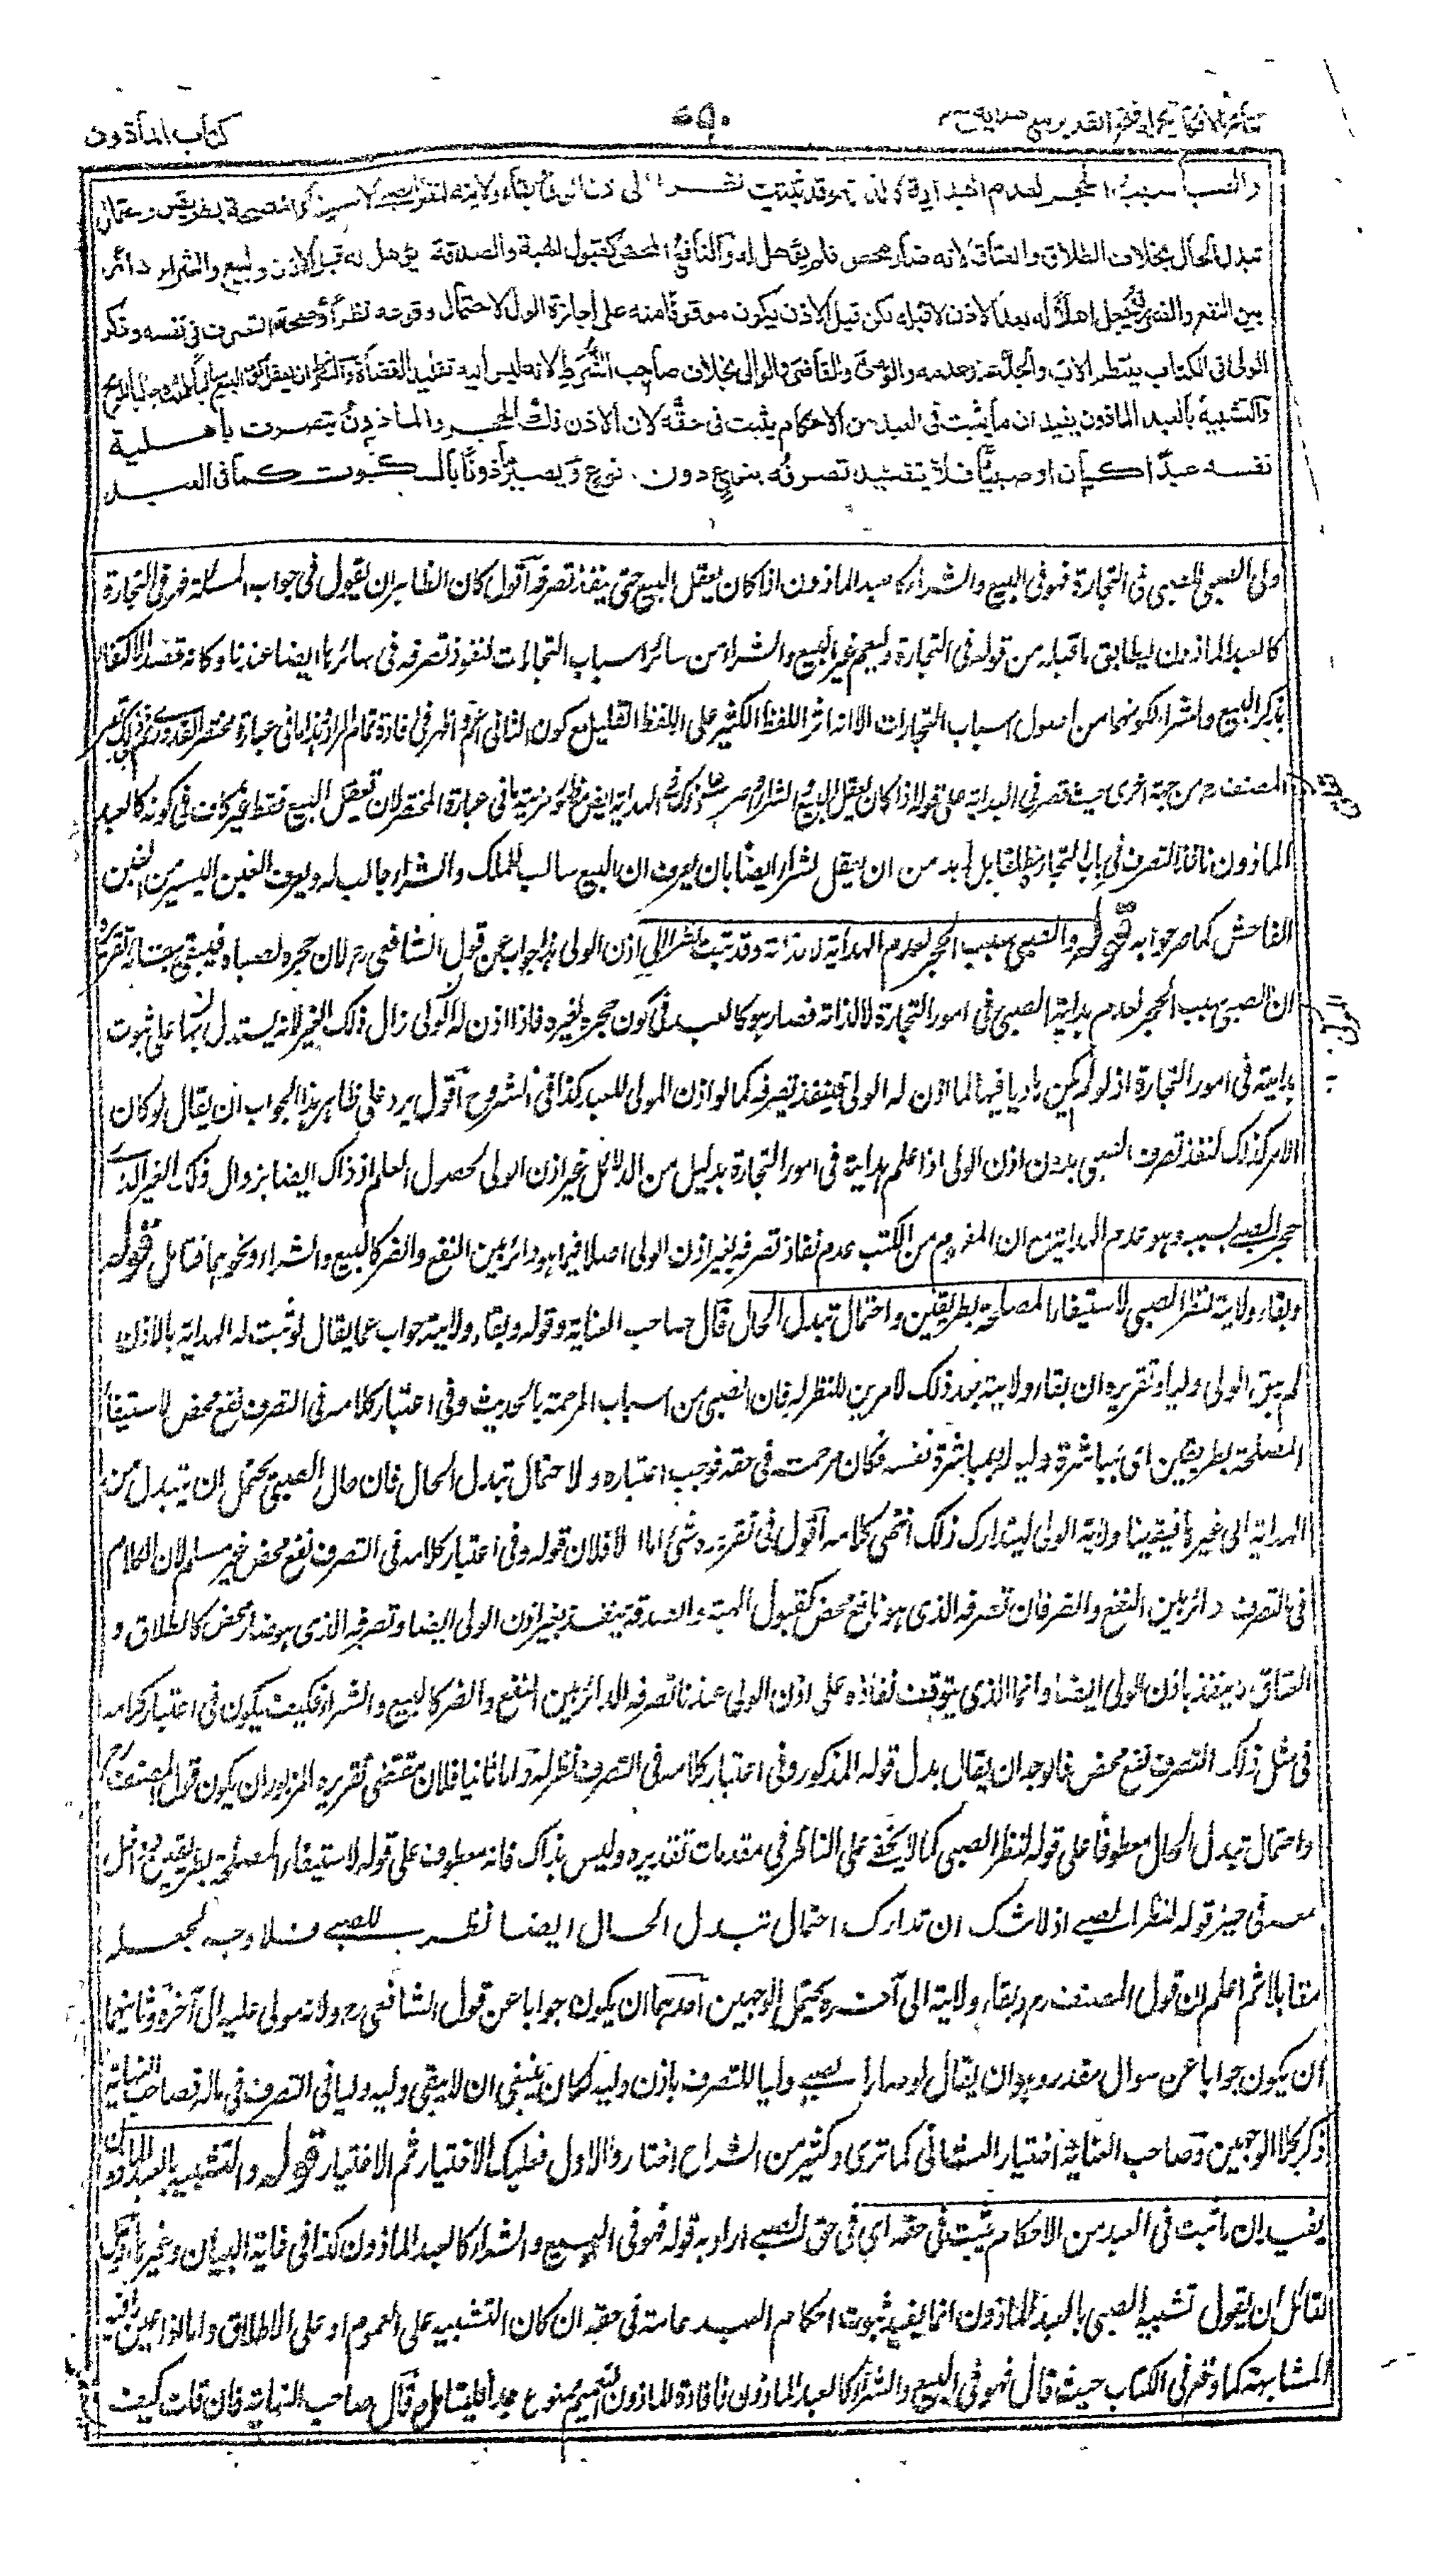 نتائج الافكار تكملة فتح القدير مع هداية ج ٣
٥٩٠
كتاب المأذون
والصبا سبب الحجر لعدم الهداية لا لذاته وقد ثبتت نظرا الى اذن الولي وبقاء ولايته لنظر الصبي لاستيفاء المصلحة بطريقين واحتمال
تبدل الحال بخلاف الطلاق والعتاق لانه ضار محض فلم يؤهل له والنافع المحض كقبول الهبة والصدقة يؤهل له قبل الاذن والبيع والشراء دائر
بين النفع والضرر فيجعل اهلا له بعد الاذن لا قبله لكن قبل الاذن يكون موقوفا منه على اجازة الولي لاحتمال وقوعه نظرا وصحة التصرف في نفسه وذكر
الولي في الكتاب ينتظم الاب والجد عند عدمه والوصي والقاضي والوالي بخلاف صاحب الشرط لانه ليس اليه تقليد القضاة والشرط ان يعقل كون البيع سالبا للملك جالبا للربح
والتشبيه بالعبد الماذون يفيد ان ما يثبت في العبد من الاحكام يثبت في حقه لان الاذن فك الحجر والماذون يتصرف باهلية
نفسه عبدا كان او صبيا فلا يتقيد تصرفه بنوع دون نوع ويصير ماذونا بالسكوت كما في العبد
ولى الصبى للصبى فى التجارة فهو فى البيع والشراء كالعبد الماذون اذا كان يعقل البيع حتى ينفذ تصرفه اقول كان الظاهر ان يقول فى جواب المسئلة فهو فى التجارة
كالعبد الماذون ليطابق ما قبله من قوله فى التجارة وليعم غير البيع والشراء من سائر اسباب التجارات لنفوذ تصرفه فى سائرها ايضا عندنا وكانه قصد الاكتفاء
بذكر البيع والشراء لكونهما من اصول اسباب التجارات الا انه اثر اللفظ الكثير على اللفظ القليل مع كون الثانى اعم واظهر فى افادة تمام المراد هذا ما فى عبارة مختصر القدورى
المصنف رح من جهة اخرى حيث قصر فى البداية على قوله اذا كان يعقل البيع والشراء لان تعقل البيع فقط غير كاف فى كونه كالعبد
الماذون نافذ التصرف فى باب التجارة مطلقا بل لا بد من ان يعقل الشراء ايضا بان يعرف ان البيع سالب للملك والشراء جالب له ويعرف الغبن اليسير من الغبن
الفاحش كما صرحوا به قوله والصبى سبب الحجر لعدم الهداية لا لذاته وقد ثبت نظرا الى اذن الولى هذا جواب عن قول الشافعى رح لان حجره لصباه فيبقى ببقائه تقريره
ان الصبى سبب الحجر لعدم هداية الصبى فى امور التجارة لا لذاته فصار هو كالعبد فى كون حجره لغيره فاذا اذن له الولى زال ذلك الغير لانه يستدل بهما على ثبوت
هدايته فى امور التجارة اذ لو لم يكن هاديا فيها لما اذن له الولى فينفذ تصرفه كما لو اذن المولى للعبد كذا فى الشروح اقول يرد على ظاهر هذا الجواب ان يقال لو كان
الامر كذلك لنفذ تصرف الصبى بدون اذن الولى اذا علم هدايته فى امور التجارة بدليل من الدلائل غير اذن الولى لحصول العلم اذ ذاك ايضا بزوال ذلك الغير الذى
حجر الصبى بسببه وهو عدم الهداية مع ان المفهوم من الكتب عدم نفاذ تصرفه بغير اذن الولى اصلا فيما هو دائر بين النفع والضر كالبيع والشراء ونحوهما فتامل قوله
وبقاء ولايته لنظر الصبى لاستيفاء المصلحة بطريقين واحتمال تبدل الحال قال صاحب العناية وقوله وبقاء ولايته جواب عما يقال لو ثبت له الهداية بالاذن
لم يبق الولى وليا وتقريره ان بقاء ولايته بعد ذلك لامرين للنظر له فان الصبى من اسباب المرحمة بالحديث وفى اعتبار كلامه فى التصرف نفع محض لاستيفاء
المصلحة بطريقين اى بمباشرة وليه له وبمباشرة نفسه فكان مرحمة فى حقه فوجب اعتباره ولاحتمال تبدل الحال فان حال الصبى يحتمل ان يتبدل من
الهداية الى غيرها فبقينا ولاية الولى ليتدارك ذلك انتهى كلامه اقول فى تقريره شئ اما اولا فلان قوله وفى اعتبار كلامه فى التصرف نفع محض غير مسلم لان الكلام
فى التصرف دائر بين النفع والضر فان تصرفه الذى هو نافع محض كقبول الهبة والصدقة ينفذ بغير اذن الولى ايضا وتصرفه الذى هو ضار محض كالطلاق و
العتاق لا ينفذ باذن الولى ايضا وانما الذى يتوقف نفاذه على اذن الولى عندنا تصرفه الدائر بين النفع والضر كالبيع والشراء فكيف يكون فى اعتبار كلامه
فى مثل ذلك التصرف نفع محض فالوجه ان يقال بدل قوله المذكور وفى اعتبار كلامه فى التصرف نظر له واما ثانيا فلان مقتضى تقريره المزبور ان يكون قول المصنف رح
واحتمال تبدل الحال معطوفا على قوله لنظر الصبى كما لا يخفى على الناظر فى مقدمات تقديره وليس بذاك فانه معطوف على قوله لاستيفاء المصلحة بطريقين فيدخل
معه فى حيز قوله لنظر الصبى اذ لا شك ان تدارك احتمال تبدل الحال ايضا نظر للصبى فلا وجه لجعله
مقابلا ثم اعلم ان قول المصنف رح وبقاء ولايته الى آخره يحتمل الوجهين احدهما ان يكون جوابا عن قول الشافعى رح ولانه مولى عليه الى آخره وثانيهما
ان يكون جوابا عن سوال مقدر وهو ان يقال لو صار الصبى وليا للتصرف باذن وليه لكان ينبغى ان لا يبقى وليه وليا فى التصرف فى ماله فصاحب النهاية
ذكر كلا الوجهين وصاحب العناية اختيار الثانى كما ترى وكثير من الشراح اختاروا الاول فعليك الاختيار ثم الاختيار قوله والتشبيه بالعبد الماذون
يفيد ان ما ثبت فى العبد من الاحكام يثبت فى حقه اى فى حق الصبى اراد به قوله فهو فى البيع والشراء كالعبد الماذون كذا فى غاية البيان وغيرها اقول
لقائل ان يقول تشبيه الصبى بالعبد الماذون انما يفيد ثبوت احكام العبد عامة فى حقه ان كان التشبيه على العموم او على الاطلاق واما اذا عين ما فيه
المشابهة كما وقع فى الكتاب حيث قال فهو فى البيع والشراء كالعبد الماذون فافادة الماذون التعميم ممنوع جدا فليتامل قال صاحب النهاية فان قلت كيف